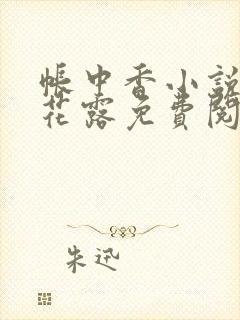 帐中香小説
花露免費閱
朱迅